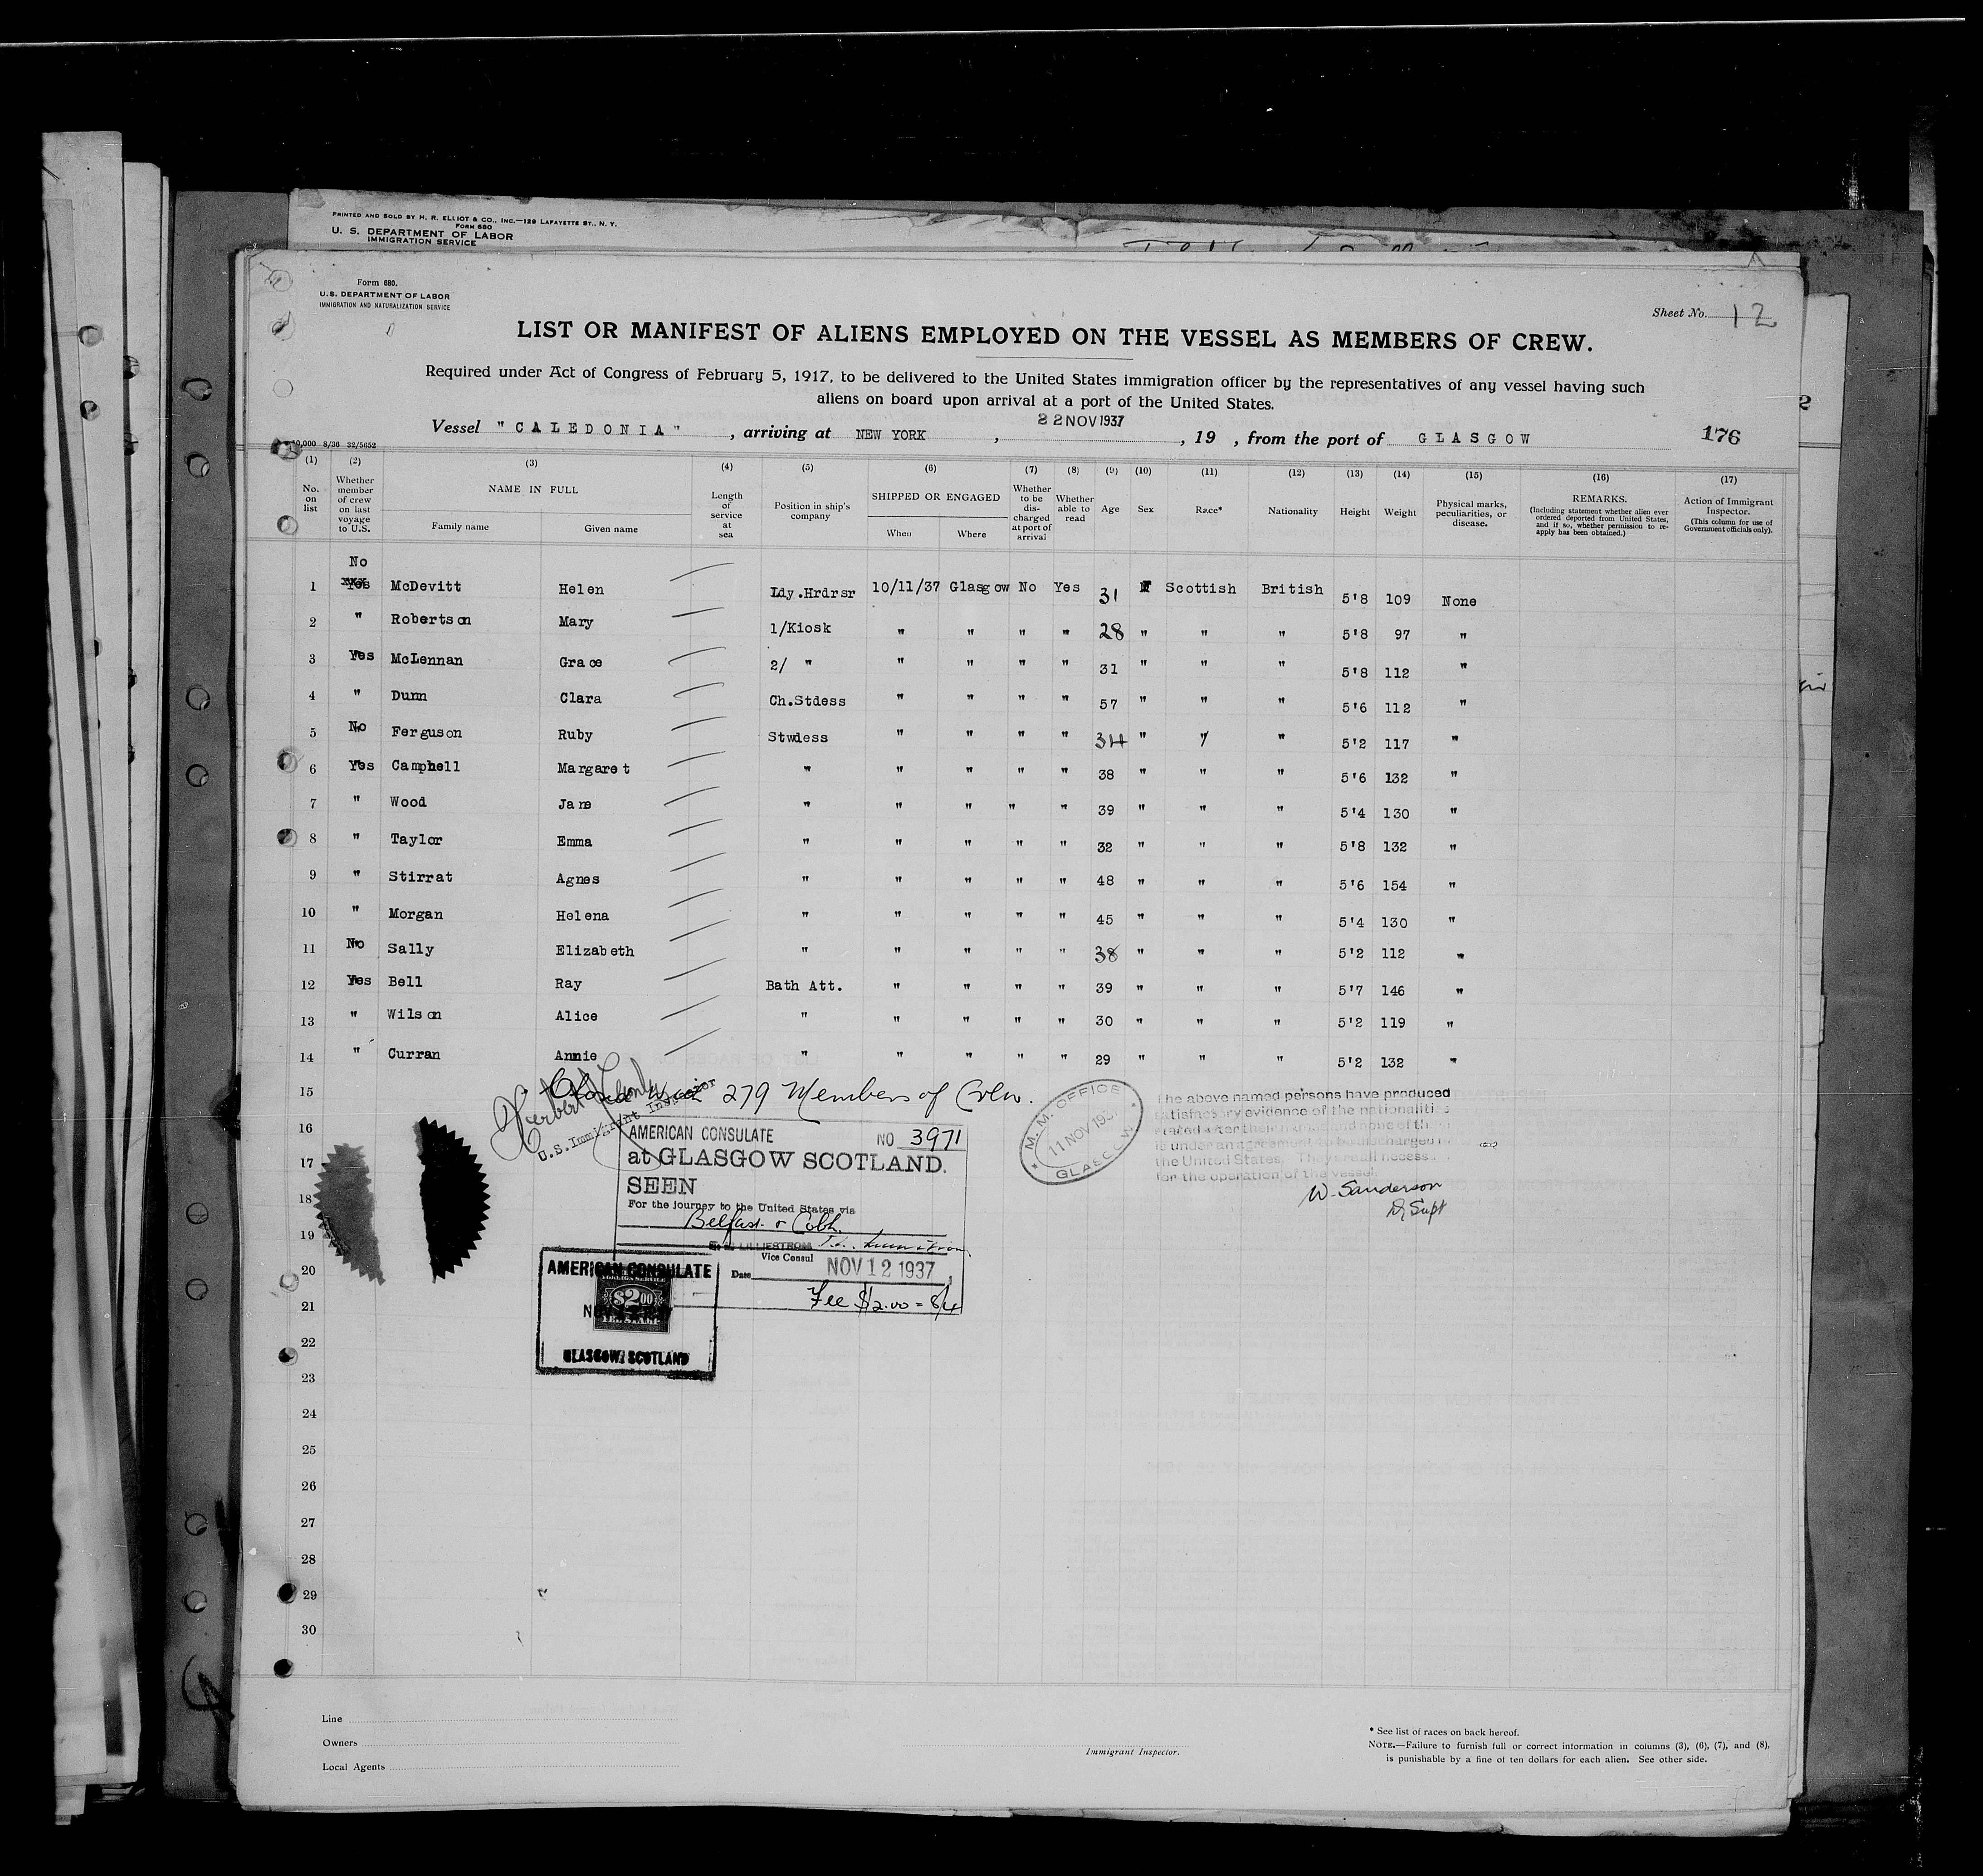 PRINTED AND SOLD BY H. R. ELLIOT & CO., INC.—129 LAFAYETTE ST., N. Y.
FORM 680
U. S. DEPARTMENT OF LABOR
IMMIGRATION SERVICE
Form 680.
U.S. DEPARTMENT OF LABOR
IMMIGRATION AND NATURALIZATION SERVICE
Sheet No. 12
LIST OR MANIFEST OF ALIENS EMPLOYED ON THE VESSEL AS MEMBERS OF CREW.
Required under Act of Congress of February 5, 1917, to be delivered to the United States immigration officer by the representatives of any vessel having such
aliens on board upon arrival at a port of the United States.
Vessel "CALEDONIA", arriving at NEW YORK, 22 NOV 1937, 19 , from the port of GLASGOW
176
8/36 32/5652
(1) (2) (3) (4) (5) (6) (7) (8) (9) (10) (11) (12) (13) (14) (15) (16) (17)
No. on list
Whether member of crew on last voyage to U.S.
NAME IN FULL
Family name
Given name
Length of service at sea
Position in ship's company
SHIPPED OR ENGAGED
When
Where
Whether to be discharged at port of arrival
Whether able to read
Age
Sex
Race*
Nationality
Height
Weight
Physical marks, peculiarities, or disease.
REMARKS.
(Including statement whether alien ever ordered deported from United States, and if so, whether permission to reapply has been obtained.)
Action of Immigrant Inspector.
(This column for use of Government officials only).
No
1 Yes McDevitt Helen Ldy.Hrdrsr 10/11/37 Glasgow No Yes 31 F Scottish British 5'8 109 None
2 " Robertson Mary 1/Kiosk " " " " 28 " " " 5'8 97 "
3 Yes McLennan Grace 2/ " " " " " 31 " " " 5'8 112 "
4 " Dunn Clara Ch.Stdess " " " " 57 " " " 5'6 112 "
5 No Ferguson Ruby Stwdess " " " " 34 " " " 5'2 117 "
6 Yes Campbell Margaret " " " " " 38 " " " 5'6 132 "
7 " Wood Jane " " " " " 39 " " " 5'4 130 "
8 " Taylor Emma " " " " " 32 " " " 5'8 132 "
9 " Stirrat Agnes " " " " " 48 " " " 5'6 154 "
10 " Morgan Helena " " " " " 45 " " " 5'4 130 "
11 No Sally Elizabeth " " " " " 38 " " " 5'2 112 "
12 Yes Bell Ray Bath Att. " " " " 39 " " " 5'7 146 "
13 " Wilson Alice " " " " " 30 " " " 5'2 119 "
14 " Curran Annie " " " " " 29 " " " 5'2 132 "
15
16
17
18
19
20
21
22
23
24
25
26
27
28
29
30
279 Members of Crew.
Herbert
U.S. Immigrant Inspector
AMERICAN CONSULATE NO 3971
at GLASGOW SCOTLAND.
SEEN
For the journey to the United States via
Belfast & Cobh.
LILLIESTROM
Vice Consul
Date NOV 12 1937
Fee $2.00 = 8/4
AMERICAN CONSULATE
FOREIGN SERVICE
$2.00
FEE STAMP
GLASGOW, SCOTLAND
M. M. OFFICE
11 NOV 193
GLASGOW
The above named persons have produced
satisfactory evidence of the nationalities
stated after their names and none of th
is under an agreement to be discharged in
the United States. They are all necess
for the operation of the vessel.
W. Sanderson
Dy Supt
Line
Owners
Local Agents
Immigrant Inspector.
* See list of races on back hereof.
NOTE.—Failure to furnish full or correct information in columns (3), (6), (7), and (8),
is punishable by a fine of ten dollars for each alien. See other side.